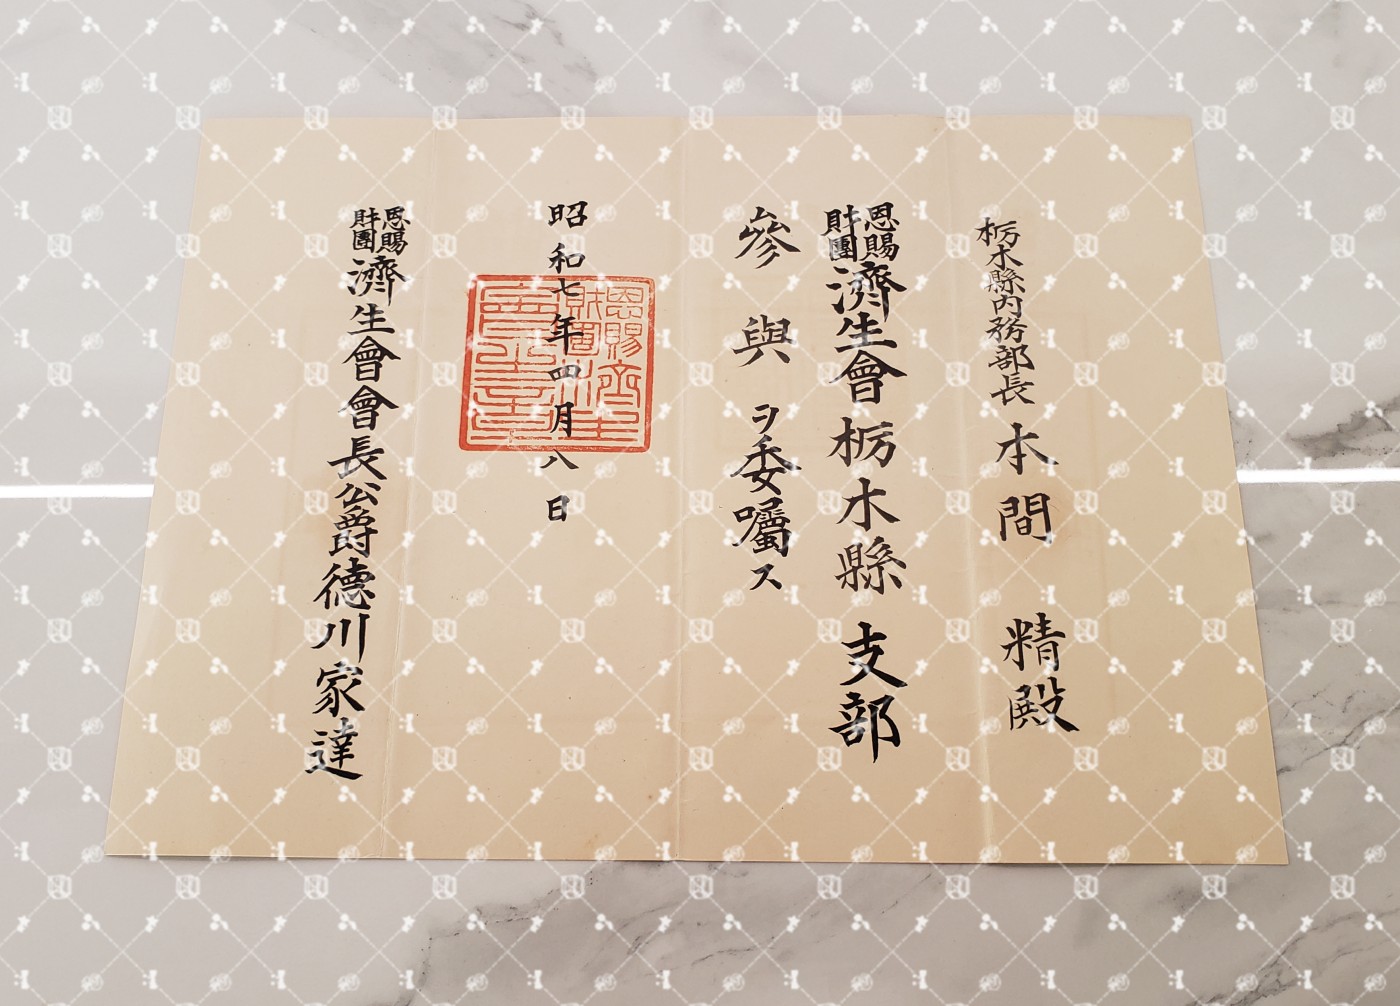 栃木縣内務部長 本間 精殿
恩賜財團濟生會栃木縣支部
參與ヲ委囑ス
昭和七年四月八日
恩賜財團濟生會會長公爵德川家達